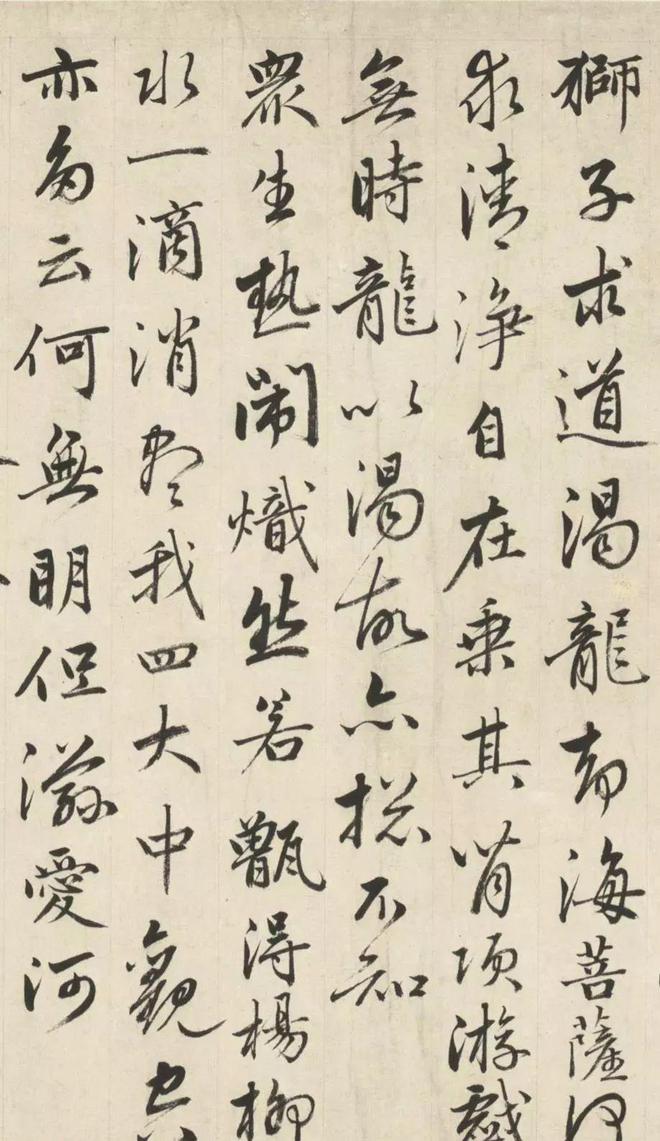 獅子求道渴龍奔海菩薩何
求清淨自在乘其背項游戲
無時龍以渴故亦摠不知
衆生熱鬧熾然若甑得楊柳
水一滴消盡我四大中觀世
亦多云何無明但溺愛河